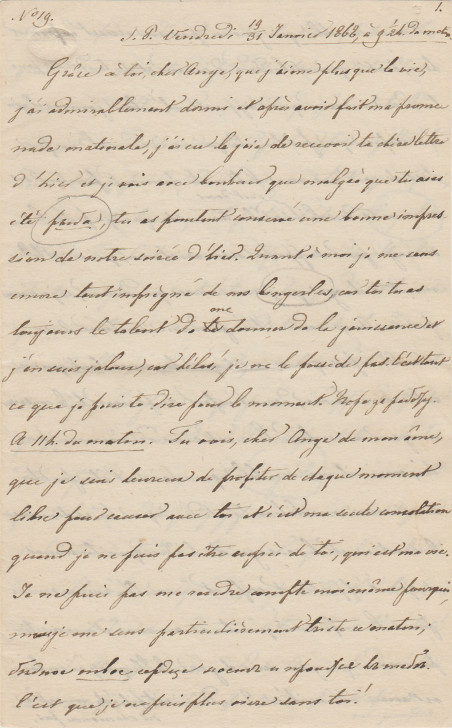 No 19. 1.
S. P. Vendredi 19/31 Janvier 1868, à 9 1/2 h. du matin.
Grâce à toi, cher Ange, que j'aime plus que la vie,
j'ai admirablement dormi et après avoir fait ma prome
nade matinale, j'ai eu la joie de recevoir ta chère lettre
d'hier et je vois avec bonheur que malgré que tu aies
été tu as pourtant conservé une bonne impres
sion de notre soirée d'hier. Quant à moi je me sens
encore tout imprégné de nos bingerles, car toi tu as
toujours le talent de me donner de la jouissance et
j'en suis jaloux, car hélas, je ne le possède pas. C'est tout
ce que je puis te dire pour le moment.
A 11 h. du matin. Tu vois, cher Ange de mon âme,
que je suis heureux de profiter de chaque moment
libre pour causer avec toi et c'est ma seule consolation
quand je ne puis pas être auprès de toi, qui est ma vie.
Je ne puis pas me rendre compte moi même pourquoi,
mais je me sens particulièrement triste ce matin,
сердце
c'est que je ne puis plus vivre sans toi!